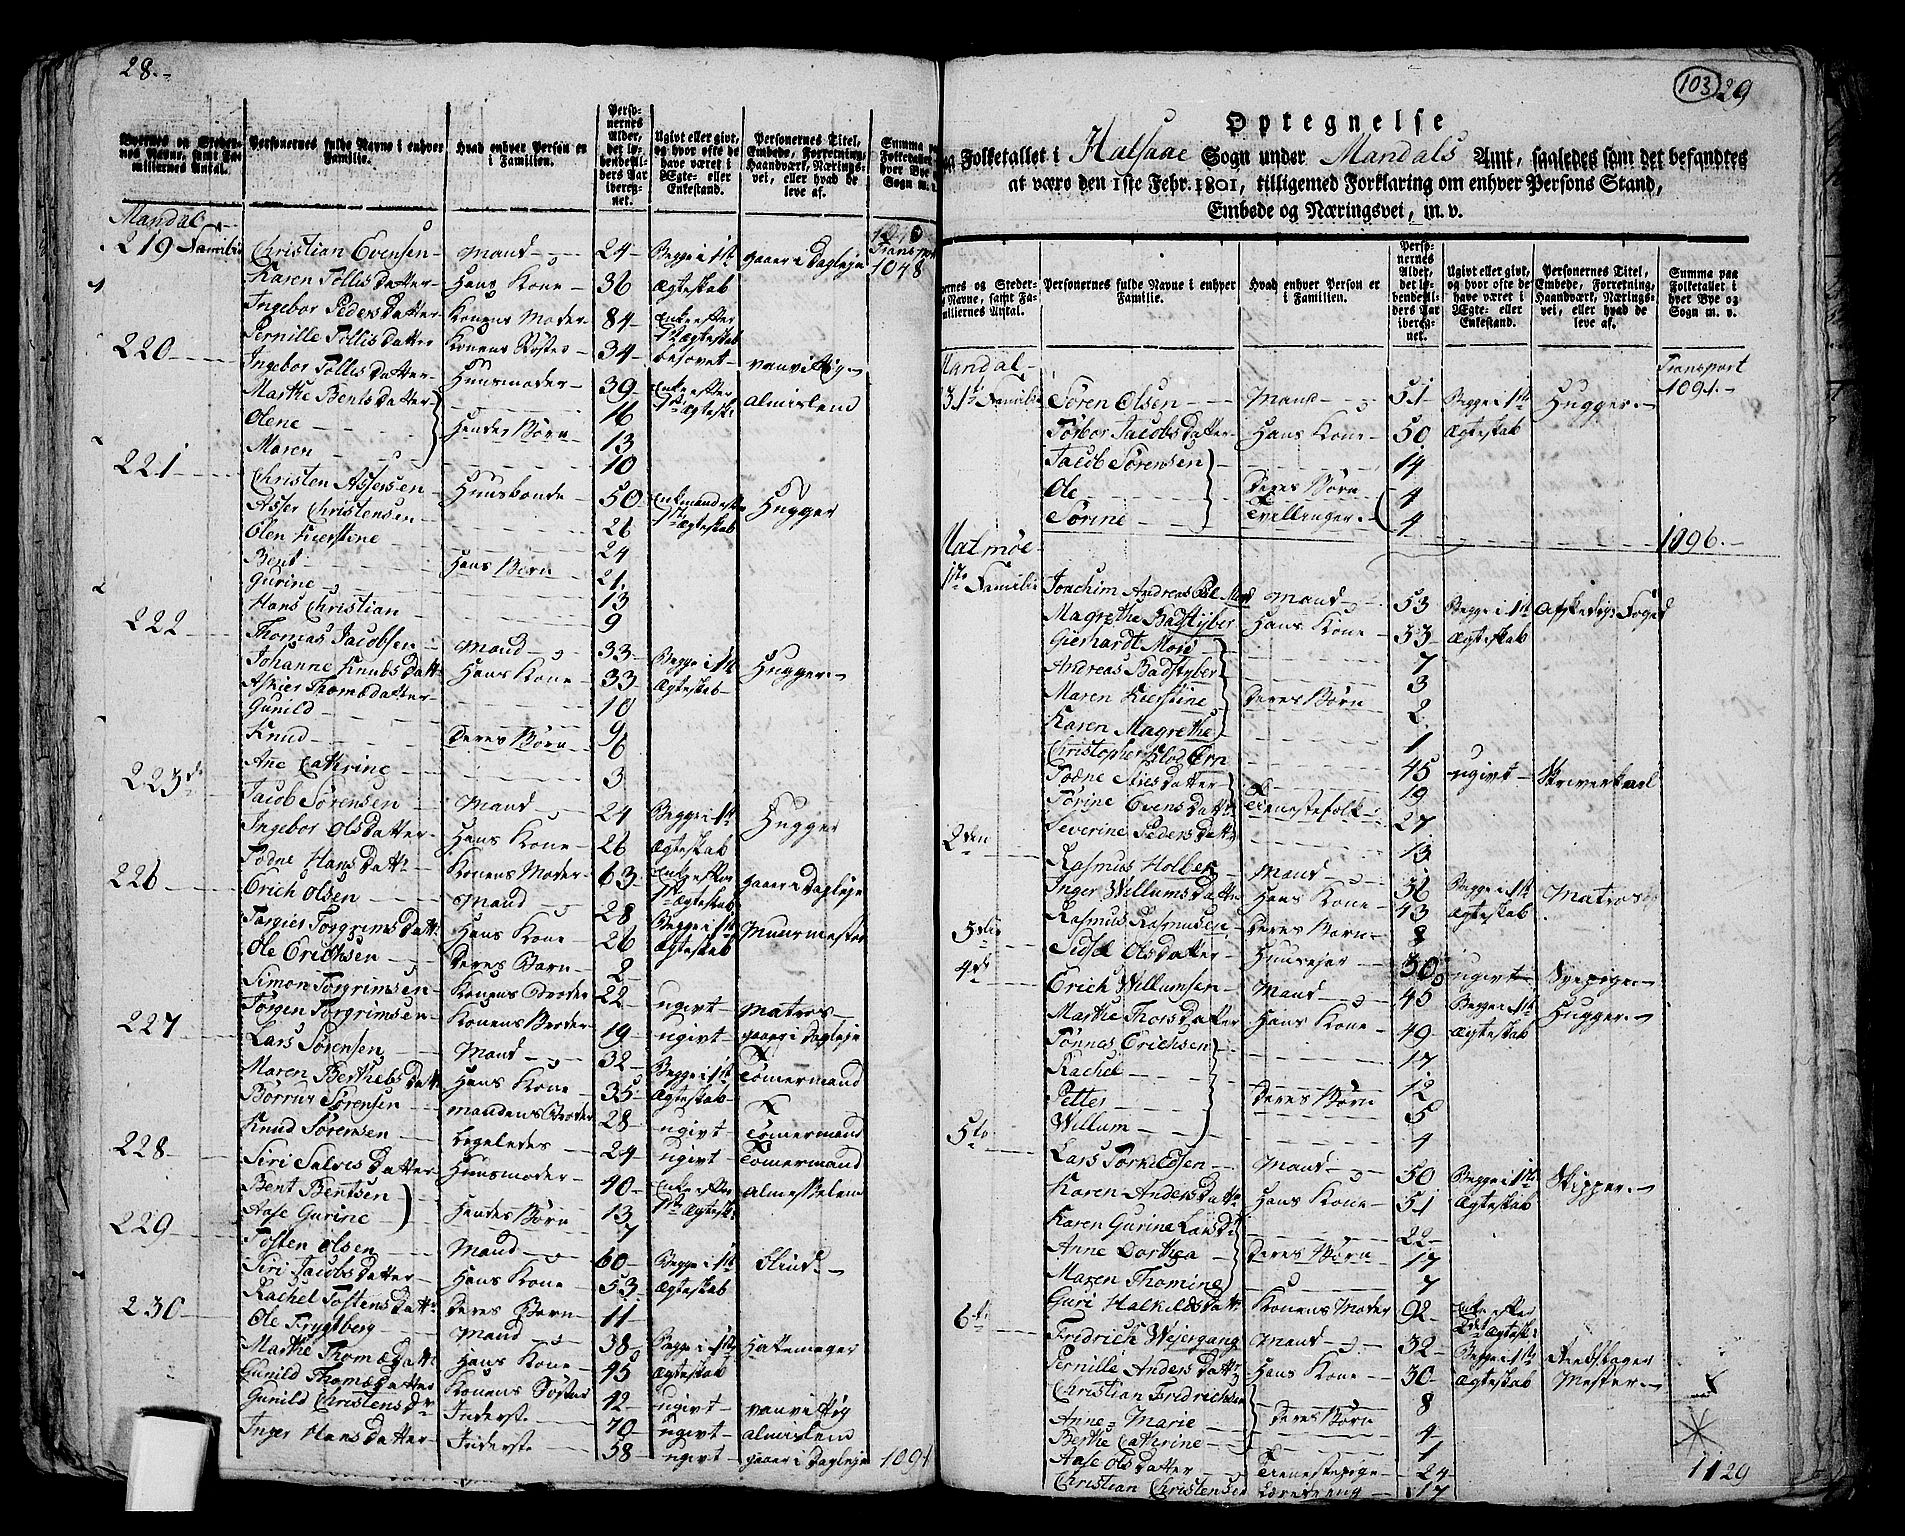 28.-
Byernes og Stedernes Navne, samt Familliernes Antal.
Personernes fulde Navne i enhver Familie.
Hvad enhver Person er i Familien.
Personernes Alder, det løbendeAlders Aar iberegnet.
Ugivt eller givt, og hvor ofte de have været i Ægte- eller Enkestand.
Personernes Titel, Embede, Forretning, Haandværk, Næringsvei, eller hvad de leve af.
Summa paa Folketallet i hver Bye og Sogn m. v.
Mandal
Transport 1048
219 Familie Christian Evensen Mand 24 Begge i 1st gaaer i Dagleje
Karen Tollis Datter Hans Kone 36 Ægteskab
Ingebor Peders Datter Konens Moder 84 Enke efter
Pernille Tollis Datter Konens Søster 34 1st Ægteskab besovet vanvittig
220 Ingebor Tollis Datter Huusmoder 39 Enke efter Almislem
Marthe Bents Datter 16 1st Ægtesk:
Olene Hendes Børn 13
Maren 10
221 Christen Assersen Huusbonde 50 Enkemand efter Hugger
Asser Christensen 26 1ste Ægteskab
Olen Kierstine 24
Bent Hans Børn 21
Gurine 13
Hans Christian 9
222 Thomas Jacobsen Mand 33 Begge i 1st Hugger
Johanne Knuds Datt: Hans Kone 33 Ægteskab
Askier Thomædatter 10
Gunild 9
Knud Deres Børn 6
Ane Cathrine 3
223de Jacob Sørensen Mand 24 Begge i 1st Hugger
Ingebor Ols Datter Hans Kone 26 Ægteskab
Todne Hans Datt: Konens Moder 63 Enke efter 1st Ægteskab gaaer i Dagleje
226 Erich Olsen Mand 28 Begge i 1st Muurmester
Targier Torgrims Datt: Hans Kone 26 Ægteskab
Ole Erichsen Deres Barn 2
Simon Torgrimsen Konens Broder 22 ugivt Matros
Jørgen Torgrimsen Konens Broder 19 ugivt gaaer i Dagleje
227 Lars Sørensen Mand 32 Begge i 1st Tømermand
Maren Berthels Datt: Hans Kone 35 Ægteskab
Børrur Sørensen Mandens Broder 28 ugivt Tømermand
Knud Sørensen Ligeledes 24 ugivt Tømermand
228 Siri Salves Datter Huusmoder 40 Enke efter Almisselem
Bent Bentsen 13 1st Ægtesk:
Aase Gurine Hendes Børn 7
229 Tosten Olsen Mand 60 Begge i 1st Blind
Siri Jacobs Datter Hans Kone 53 Ægteskab
Rachel Tostens Datt: Deres Barn 11
230 Ole Frygtberg Mand 38 Begge i 1st Hattemager
Marthe Thomæ Datt: Hans Kone 45 Ægteskab
Gunild Thomæ Datter Konens Søster 42 ugivt vanvittig
Gunild Christens Dr Inderst 70 ugivt Almislem
Inger Hans Datter Inderst 58 ugivt gaaer i Dagleje 1091
103 29
Optegnelse
og Folketallet i Halsaae Sogn under Mandals Amt, saaledes som det befandtes
at være den 1ste Febr. 1801, tilligemed Forklaring om enhver Persons Stand,
Embede og Næringsvei, m. v.
ernes og Steder- Navne, samt Fa- milliernes Antal.
Personernes fulde Navne i enhver Familie.
Hvad enhver Person er i Familien.
Personernes Alder, det løbendeAlders Aar iberegnet.
Ugivt eller givt, og hvor ofte de have været i Ægte- eller Enkestand.
Personernes Titel, Embede, Forretning, Haandværk, Næringsvei, eller hvad de leve af.
Summa paa Folketallet i hver Bye og Sogn m. v.
Mandal
Transport 1091.
31te Familie Søren Olsen Mand 51 Begge i 1st Hugger
Torbor Jacobs Datter Hans Kone 50 Ægteskab
Jacob Sørensen 14
Ole Deres Børn 4
Sørine Tvillinger 4
1096.
Malmøe
1ste Familie Joachim Andreas Mand 53 Begge i 1st Afskediget Foged
Magrethe Badstyber Hans Kone 33 Ægteskab
Gierhardt Moe 7
Andreas Badstyber 3
Maren Kierstine Deres Børn 2
Karen Magrethe 1
Christopher 45 ugivt Skriverkarl
Todne Datter 19
Tørine Evens Datt: Tienestefolk 27
Severine Peders Datt: 13
2den Rasmus Holbek Mand 36 Begge i 1st Matros
Inger Willums Datt: Hans Kone 43 Ægteskab
Rasmus Rasmusen Deres Barn 8
3die Sidsel Ols Datter 30 ugivt Sypige
4de Erich Willumsen Mand 45 Begge i 1st Hugger
Marthe Thors Datter Hans Kone 49 Ægteskab
Tønnes Erichsen 17
Rachel 12
Petter Deres Børn 5
Willum 4
5te Lars Torkildsen Mand 50 Begge i 1ste Skipper
Karen Anders Datt: Hans Kone 51 Ægteskab
Karen Gurine Lars Dt 22
Anne Dorthea Deres Børn 17
Maren Thomine 7
Guri Halkilds Datt: Konens Moder 92 Enke efter 2det Ægtesk:
6te Fridrich Weyergang Mand 32 Begge i 1st Rebslager
Pernille Anders Datt: Hans Kone 30 Ægteskab Mester
Christian Fridrichsen 8
Anne Marie Deres Børn 4
Berthe Cathrine 1
Aase Ols Datter Tienestepige 24
Christian Christensen Læredreng 17
1129